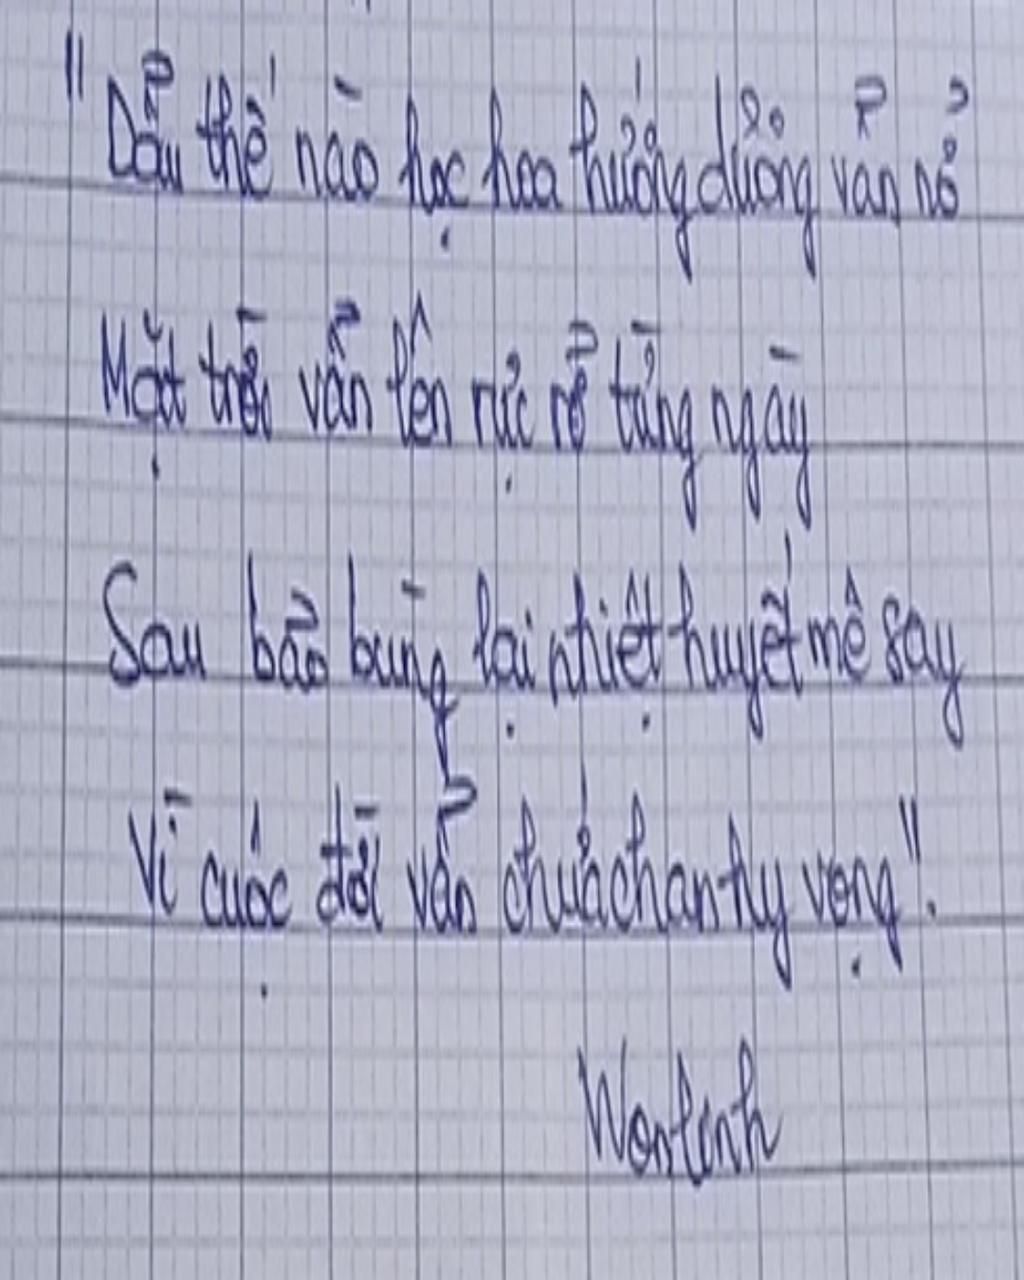 "Dẫu thế nào học hoa hướng dương vẫn nở
Mặt trời vẫn lên rực rỡ từng ngày
Sau bão bùng lại nhiệt huyết mê say
Vì cuộc đời vẫn chứa chan hy vọng".